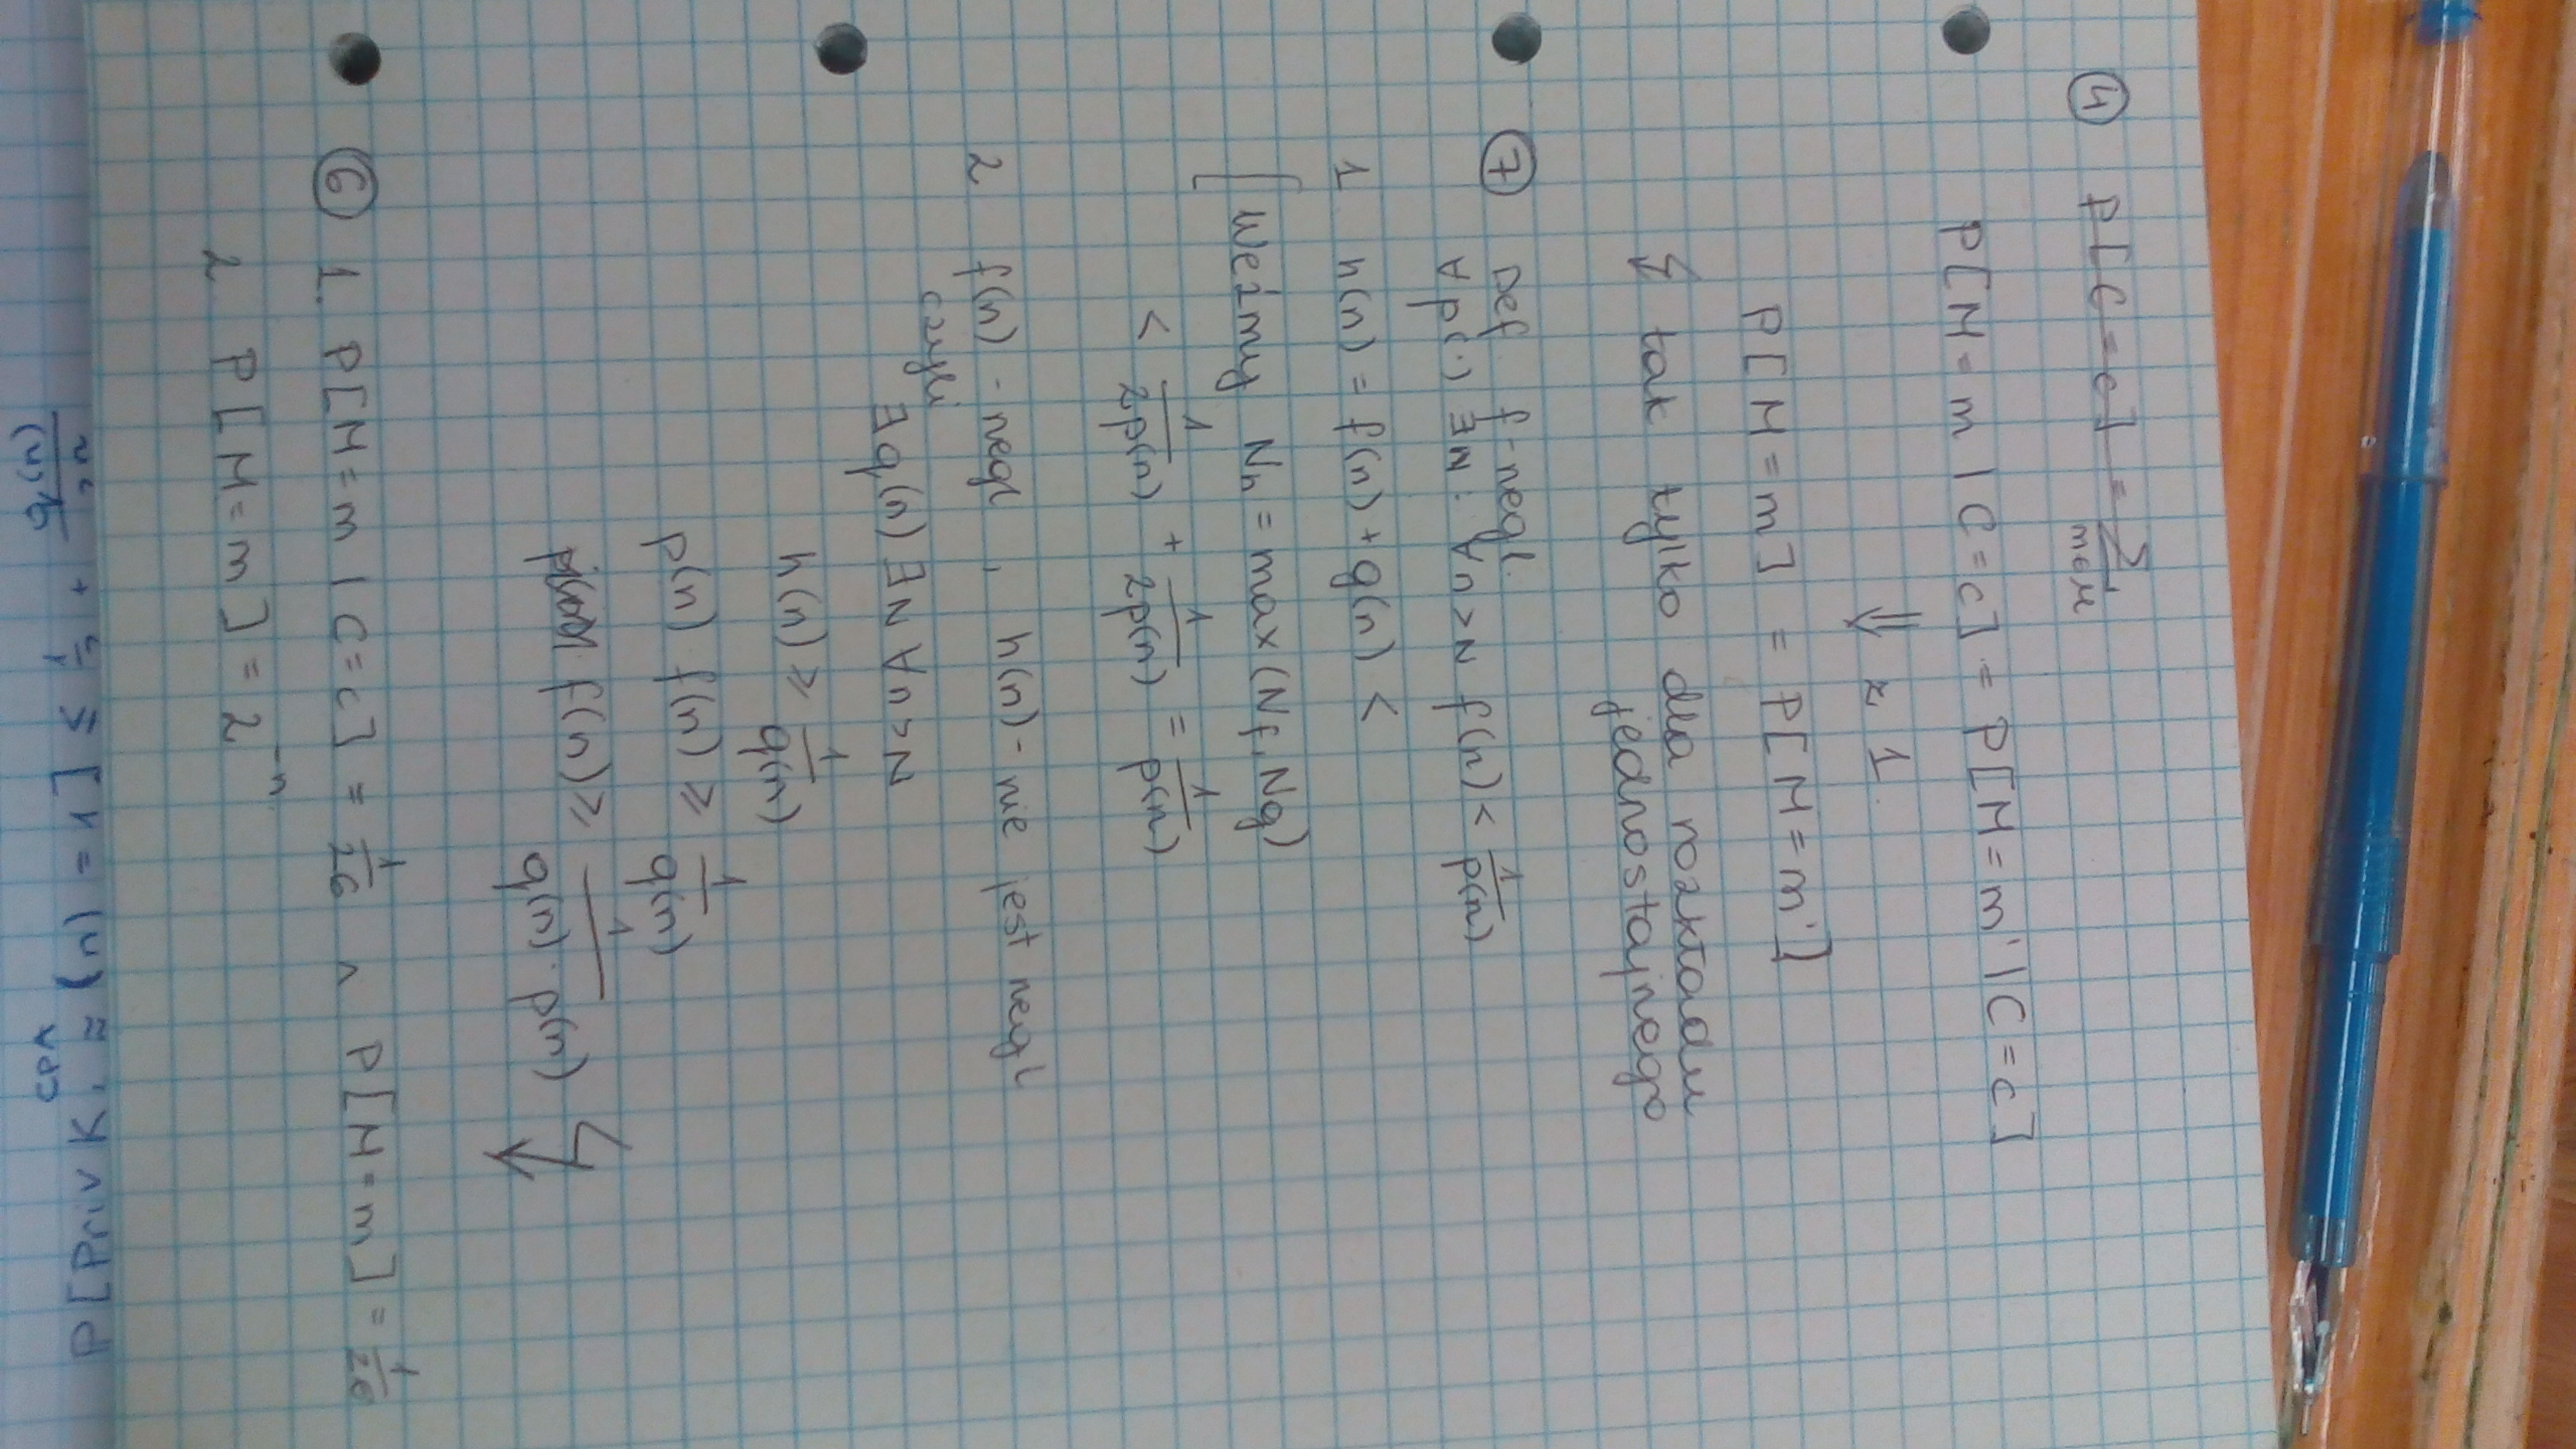 ④ P[C=c] = ∑ m∈M
P[M=m | C=c] = P[M=m' | C=c]
⇓ z 1
P[M=m] = P[M=m']
↯ tak tylko dla rozkładu
jednostajnego
⑦ Def f-negl.
∀p(·) ∃N: ∀n>N f(n) < 1/p(n)
1 h(n) = f(n) + g(n) <
[Weźmy Nh = max(Nf, Ng)
< 1/2p(n) + 1/2p(n) = 1/p(n)
2 f(n) - negl , h(n) - nie jest negl
czyli
∃q(n) ∃N ∀n>N
h(n) ≥ 1/q(n)
p(n) f(n) ≥ 1/q(n)
f(n) ≥ 1/q(n)·p(n) ↯
⑥ 1. P[M=m | C=c] = 1/26 ∧ P[M=m] = 1/26
2. P[M=m] = 2^-n
P[PrivK, ≈ CPA (n) = 1] ≤ 1/2 + q(n)/2n